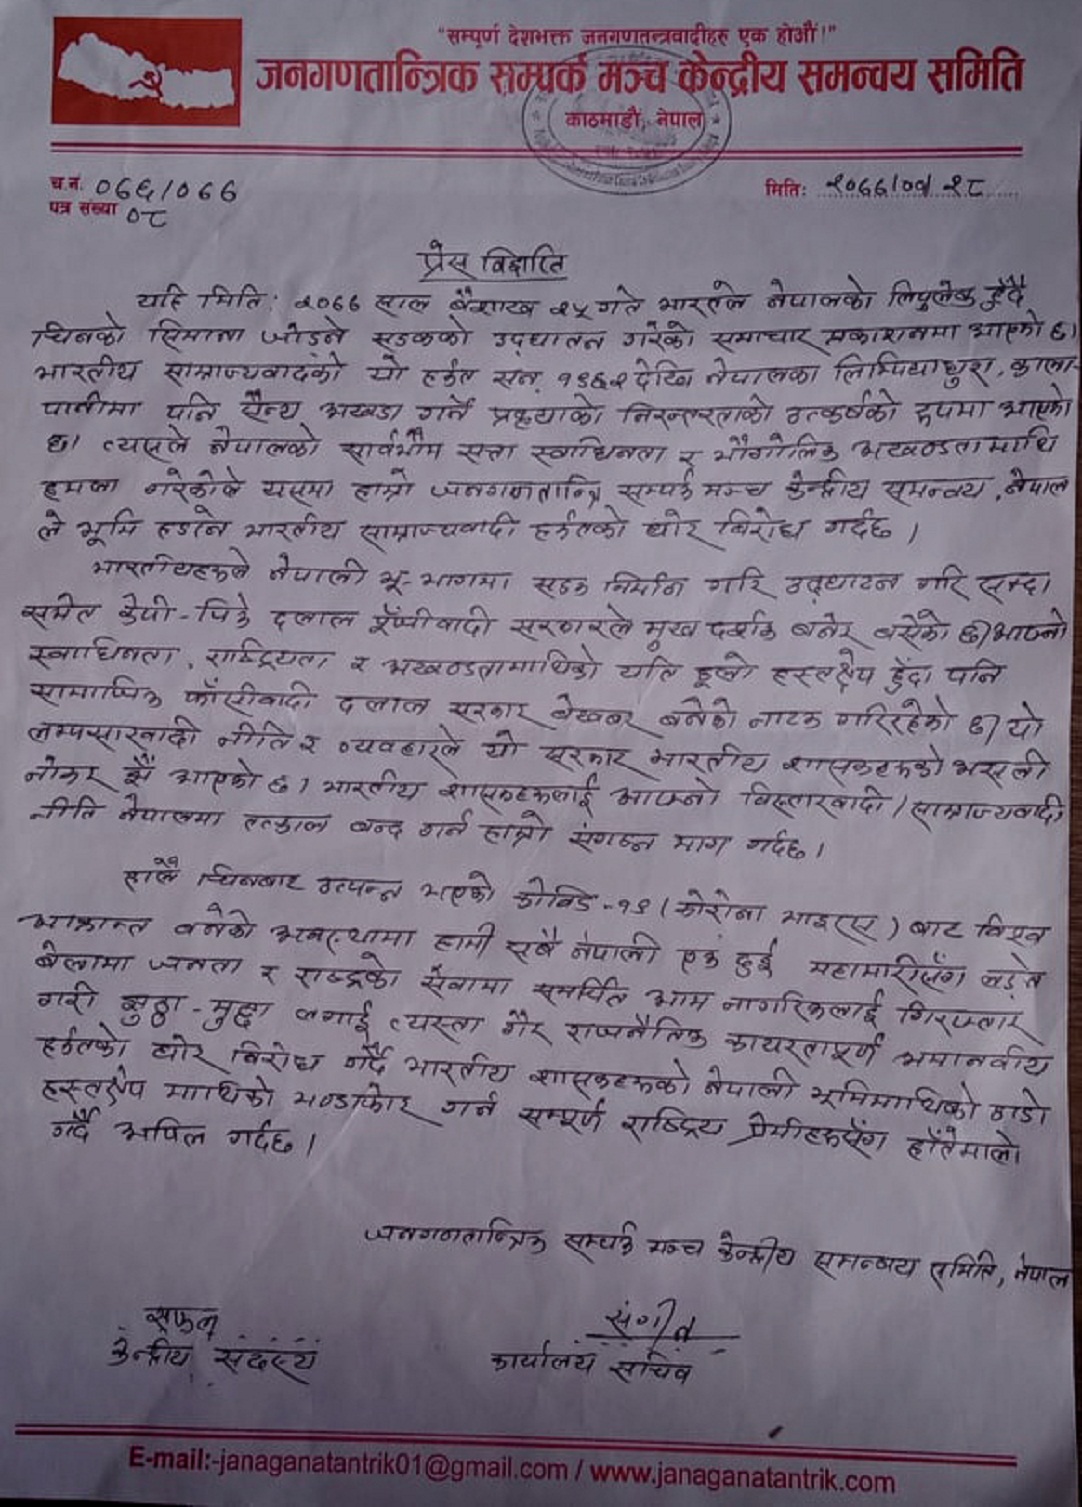 "सम्पूर्ण देशभक्त जनगणतन्त्रवादीहरु एक होऔं!"
जनगणतान्त्रिक सम्पर्क मञ्च केन्द्रीय समन्वय समिति
काठमाडौं, नेपाल
च.नं. ०७६/०७७
पत्र संख्या ०८
मितिः २०७७/०१/२८
प्रेस विज्ञप्ति
यहि मिति: २०७७ साल बैशाख २५ गते भारतले नेपालको लिपुलेक हुँदै
चिनको सिमाना जोड्ने सडकको उद्घाटन गरेको समाचार प्रकाशनमा आएको छ।
भारतीय साम्राज्यवादको यो हर्कत सन् १९६२ देखि नेपालका लिम्पियाधुरा, काला-
पानीमा पनि सैन्य अखडा गर्ने प्रकृयाको निरन्तरताको उत्कर्षको रुपमा आएको
छ। त्यसले नेपालको सार्वभौम सत्ता स्वाधिनता र भौगोलिक अखण्डतामाथि
हमला गरेकोले यसमा हाम्रो जनगणतान्त्रि सम्पर्क मञ्च केन्द्रीय समन्वय, नेपाल
ले भूमि हडप्ने भारतीय साम्राज्यवादी हर्कतको घोर विरोध गर्दछ।
भारतीयहरुले नेपाली भू-भागमा सडक निर्माण गरि उद्घाटन गरि सक्दा
समेत केपी-पिके दलाल पूँजीवादी सरकारले मुख दर्शक बनेर बसेको छ। आफ्नो
स्वाधिनता, राष्ट्रियता र अखण्डतामाथिको यति ठूलो हस्तक्षेप हुँदा पनि
सामाजिक फाँसीवादी दलाल सरकार बेखबर बनेको नाटक गरिरहेको छ। यो
लम्पसारवादी नीति र व्यवहारले यो सरकार भारतीय शासकहरुको असली
नोकर झैं आएको छ। भारतीय शासकहरुलाई आफ्नो विस्तारवादी/साम्राज्यवादी
नीति नेपालमा तत्काल बन्द गर्न हाम्रो संगठन माग गर्दछ।
हालै चिनबाट उत्पन्न भएको कोविड-१९ (कोरोना भाइरस) बाट विश्व
आक्रान्त बनेको अवस्थामा हामी सबै नेपाली एक हुई महामारीसँग लड्ने
बेलामा जनता र राष्ट्रको सेवामा समर्पित आम नागरिकलाई गिरफ्तार
गरी झुठ्ठा-मुद्दा लगाई त्यस्ता गैर राजनैतिक कायरतापूर्ण अमानवीय
हर्कतको घोर विरोध गर्दै भारतीय शासकहरुको नेपाली भूमिमाथिको ठाडो
हस्तक्षेप माथिको भण्डाफोर गर्न सम्पूर्ण राष्ट्रिय प्रेमीहरुसँग हाँतेमालो
गर्दै अपिल गर्दछ।
जनगणतान्त्रिक सम्पर्क मञ्च केन्द्रीय समन्वय समिति, नेपाल
सफल संगीत
केन्द्रीय सदस्य कार्यालय सचिव
E-mail:-janaganatantrik01@gmail.com / www.janaganatantrik.com